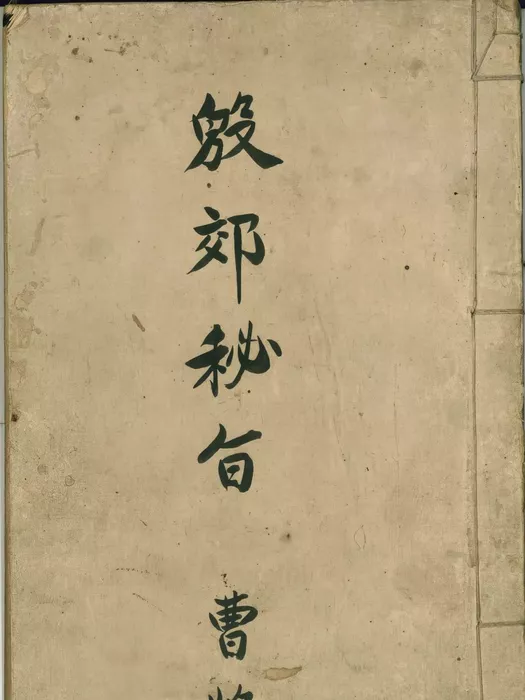 殷郊秘旨
曹